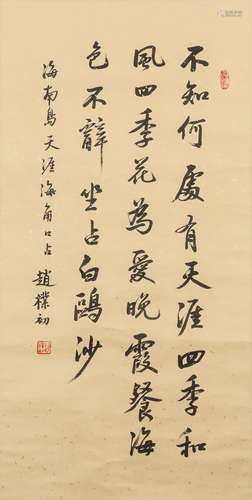 不知何處有天涯四季和
風四季花為愛晚霞餐海
色不辭坐占白鷗沙
海南島天涯海角口占
趙樸初